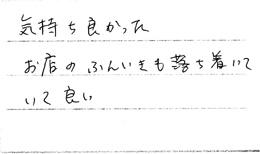 気持ち良かった
お店のふんいきも落ち着いて
いて良い